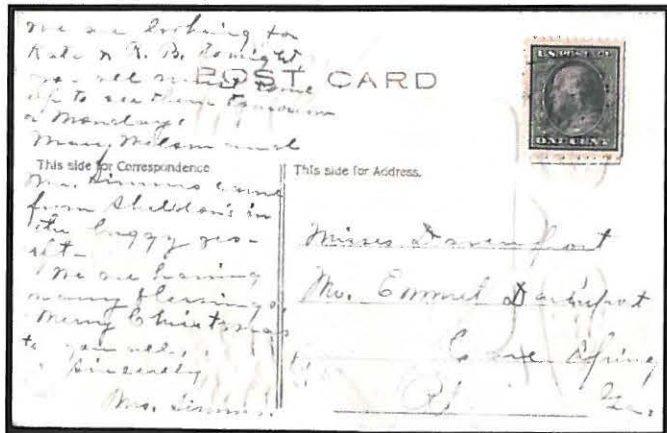 We are looking for
Kate & R. B. tonight,
you all must come
up to see them tomorrow
a Monday.
Mary Wilson and
POST CARD
U.S. POSTAGE
ONE CENT
This side for Correspondence
This side for Address.
Mr. Simms came
from Sheldon's in
the buggy yes-
We are having
many blessings,
Merry Christmas
to you all,
Sincerely
Mrs. Simms.
Misses Davenport
Mr. Emmet Davenport
Cave Spring
Ga.